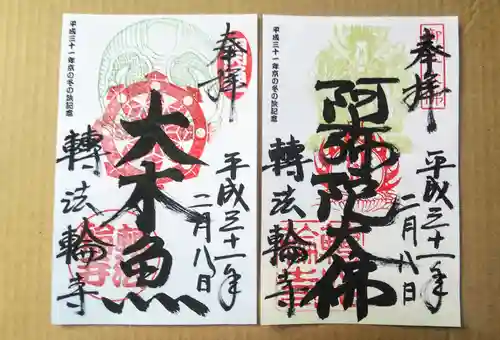 奉拝
大木魚
平成三十一年二月八日
轉法輪寺
平成三十一年京の冬の旅記念
奉拝
阿弥陀大佛
平成三十一年二月八日
轉法輪寺
平成三十一年京の冬の旅記念